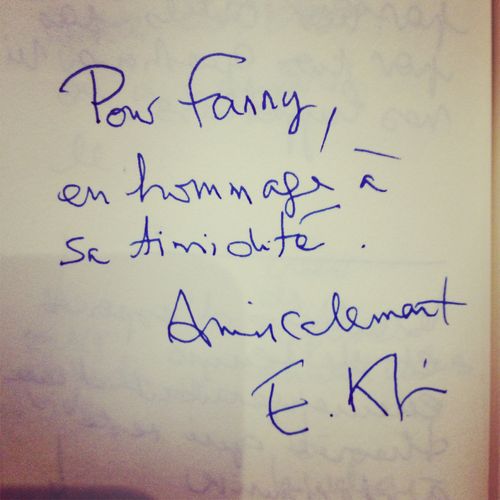 Pour Fanny,
en hommage à
sa timidité.
Amicalement
E. Klein